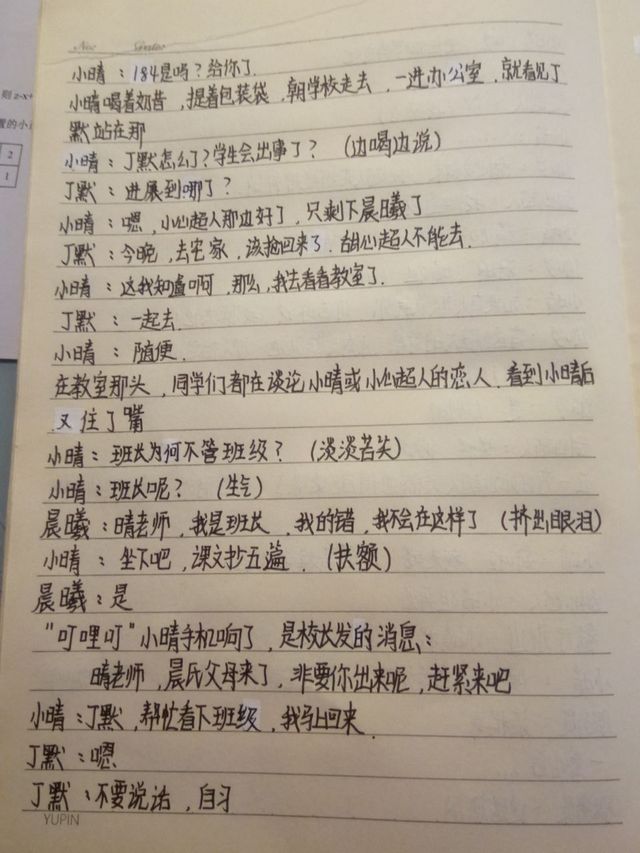 No:
Date:
则 z-x+
置的小
2
1
小晴：184是吗？给你了.
小晴喝着奶昔，提着包装袋，朝学校走去，一进办公室，就看见丁
默站在那
小晴：丁默怎么了？学生会出事了？（边喝边说）
丁默：进展到哪了？
小晴：嗯，小心超人那边好了，只剩下晨曦了
丁默：今晚，去宅家，该抢回来了. 甜心超人不能去.
小晴：这我知道啊，那么，我去看看教室了.
丁默：一起去.
小晴：随便.
在教室那头，同学们都在谈论小晴或小心超人的恋人. 看到小晴后
又住了嘴
小晴：班长为何不管班级？（淡淡苦笑）
小晴：班长呢？（生气）
晨曦：晴老师，我是班长，我的错，我不会在这样了（挤出眼泪）
小晴：坐下吧，课文抄五遍.（扶额）
晨曦：是
"叮哩叮"小晴手机响了，是校长发的消息：
晴老师，晨氏父母来了，非要你出来呢，赶紧来吧
小晴：丁默，帮忙看下班级，我马上回来.
丁默：嗯
丁默：不要说话，自习
YUPIN